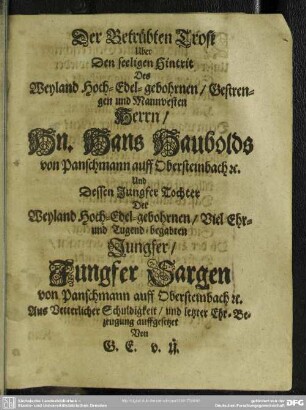 Der Betrübten Trost
Uber
Den seeligen Hintrit
Des
Weyland Hoch-Edel-gebohrnen / Gestren-
gen und Mannvesten
Herrn /
Hn. Hans Haubolds
von Panschmann auff Obersteinbach ꝛc.
Und
Dessen Jungfer Tochter
Der
Weyland Hoch-Edel-gebohrnen / Viel Ehr-
und Tugend-begabten
Jungfer /
Jungfer Sargen
von Panschmann auff Obersteinbach ꝛc.
Aus Vetterlicher Schuldigkeit / und letzter Ehr-Be-
zeugung auffgesetzet
Von
G. E. v. U.